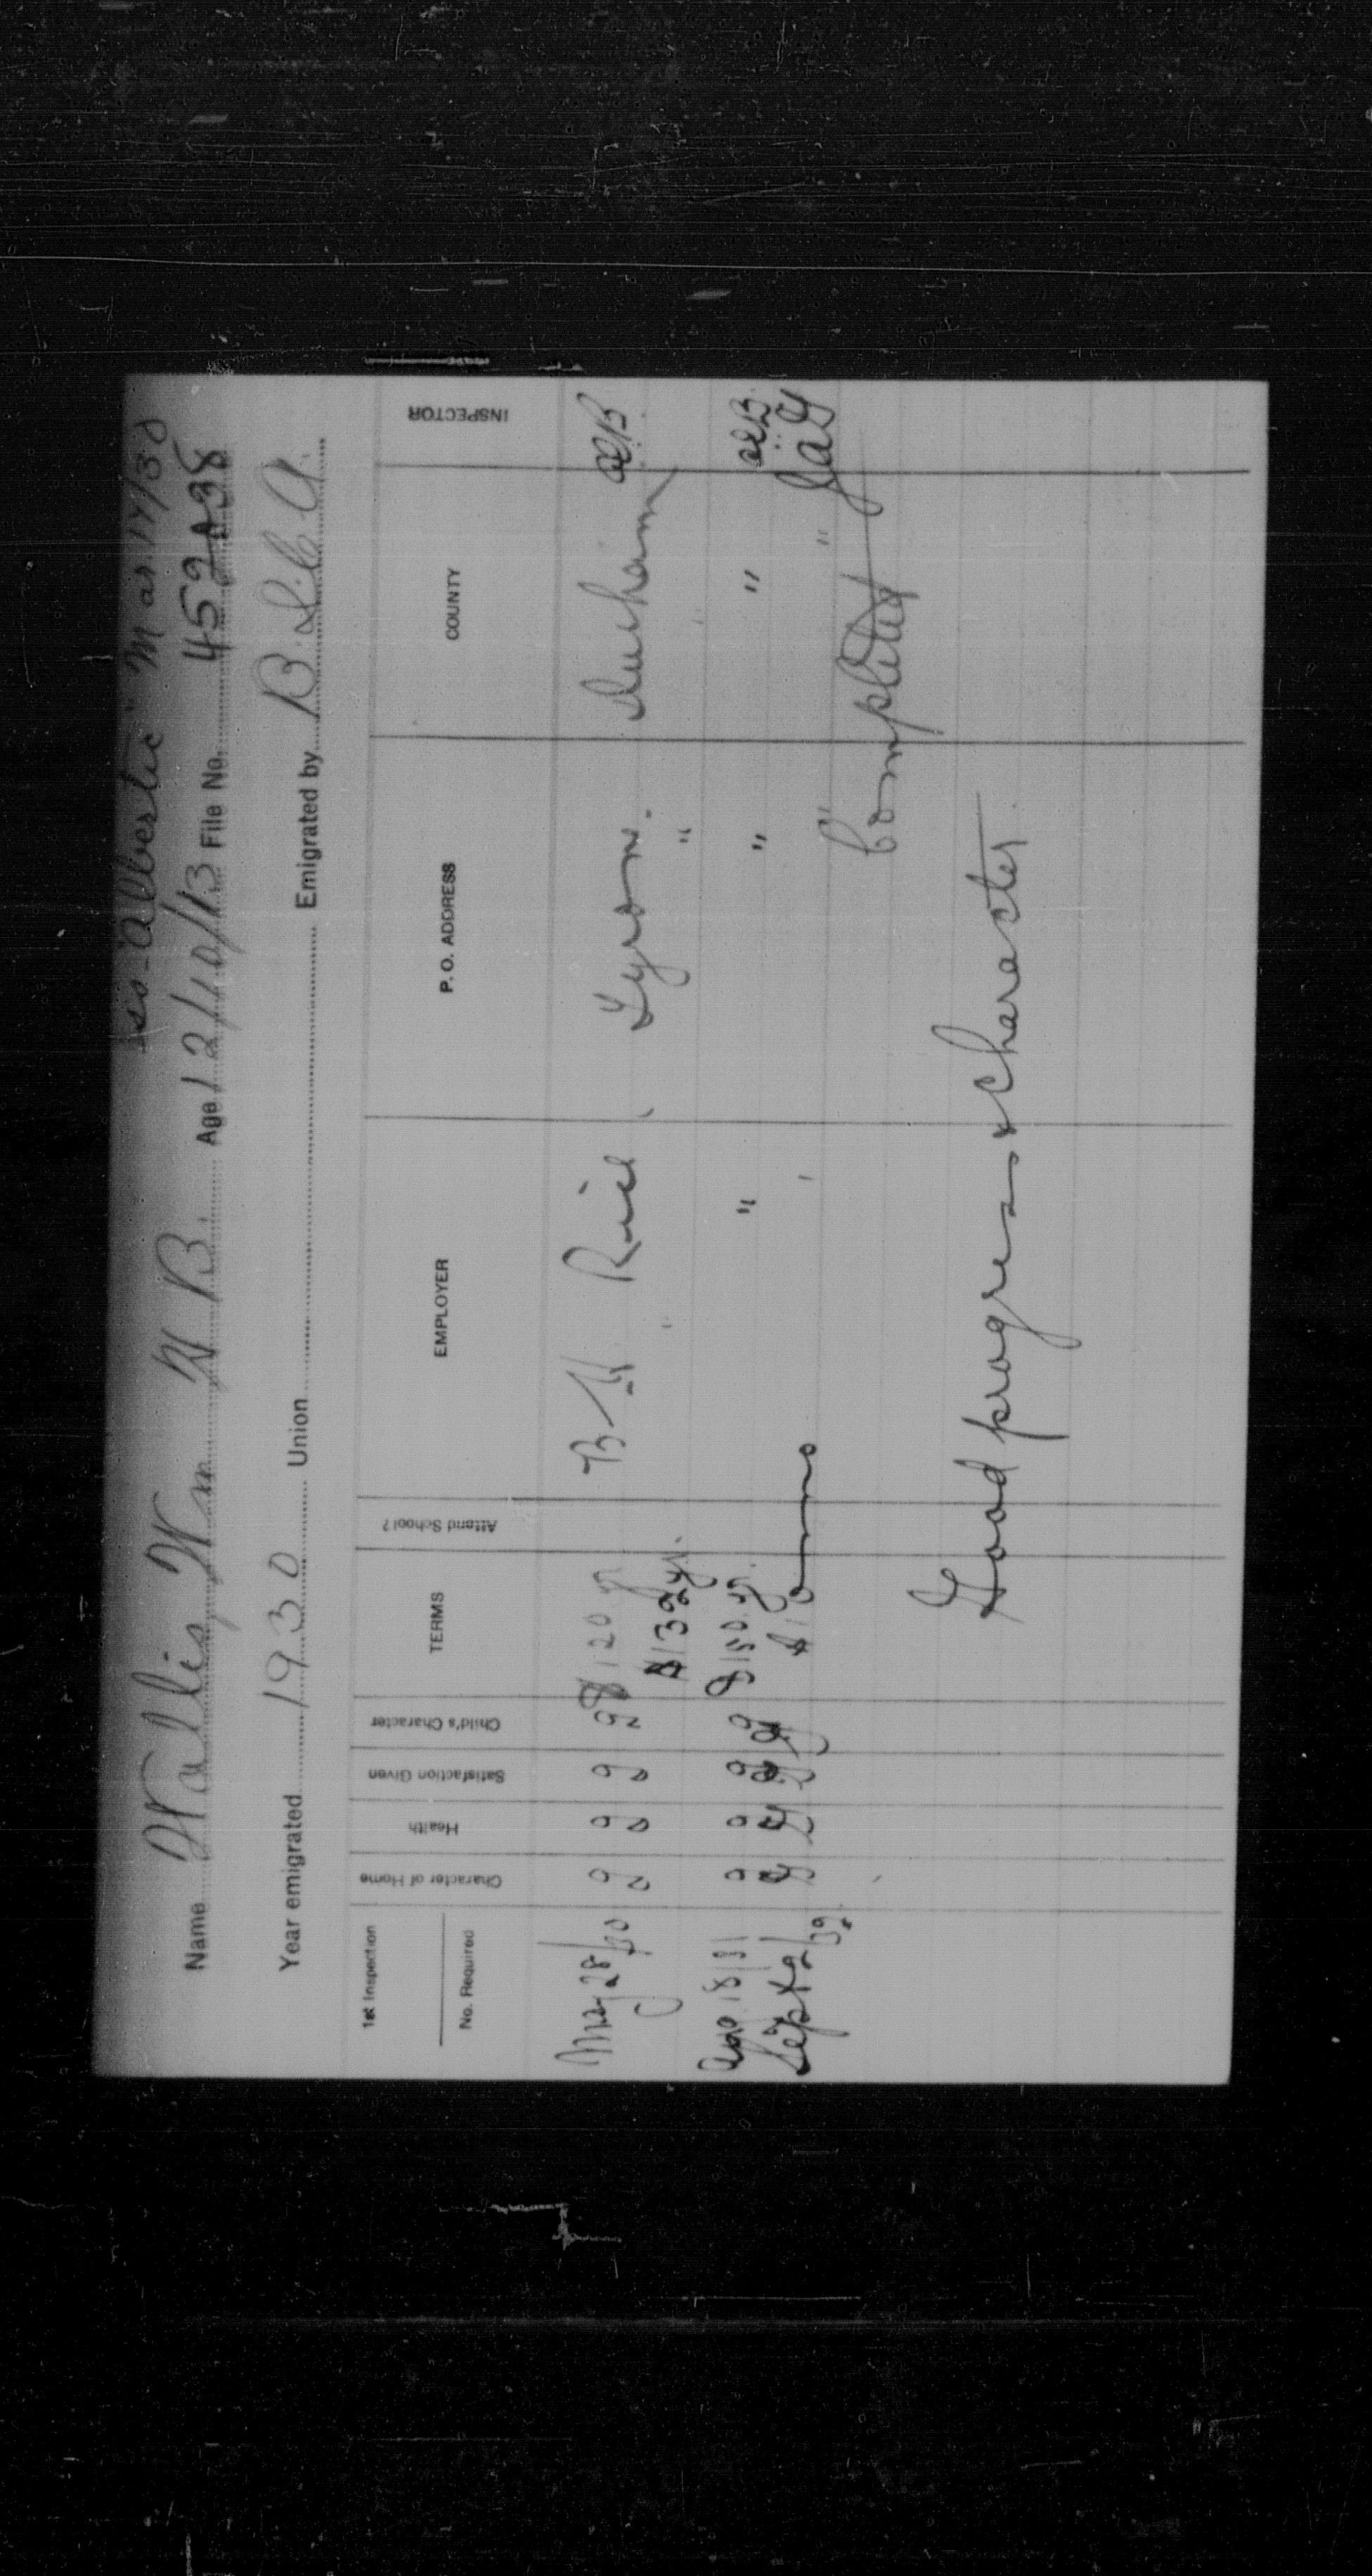 ss. "Albertic" Mar. 14/30
Name Wallis Wm W B. Age 12/10/13 File No. 452038
Year emigrated 1930 Union Emigrated by B.I.C.A.
1st Inspection No. Required Character of Home Health Satisfaction Given Child's Character TERMS Attend School? EMPLOYER P. O. ADDRESS COUNTY INSPECTOR
May 28/30 g g g g $120 yr B H Rice Tyrone. Durham
g g g g $132 yr. "
Apr 18/31 g g g g $150 yr. " " "
Sept 2/32 g g g g " "
Completed
Good progress & character.